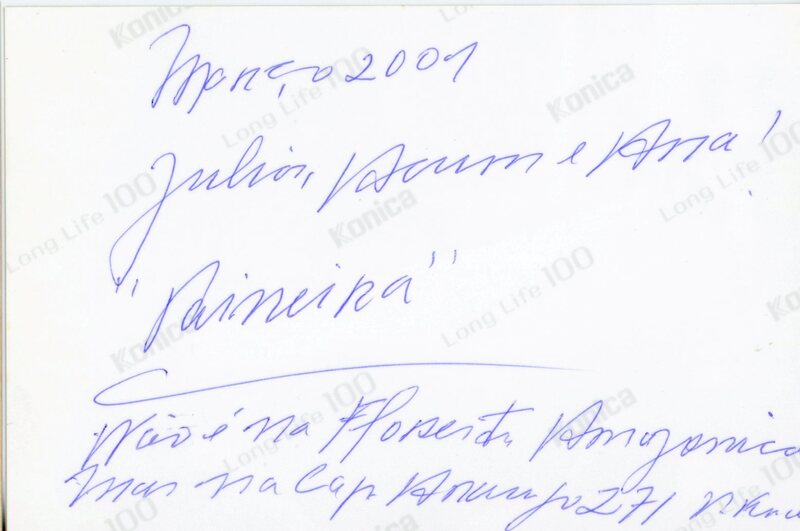 Março 2001
Julior, Akum e Ana!
"Paineira"
Não é na Floresta Amazonica
mas na Cap. Araujo 271
Konica
Long Life 100
Konica
Long Life 100
Long Life 100
Konica
Long Life 100
Long Life 100
Konica
Konica
Long Life 100
Konica
Long Life 100
Konica
Long Life 100